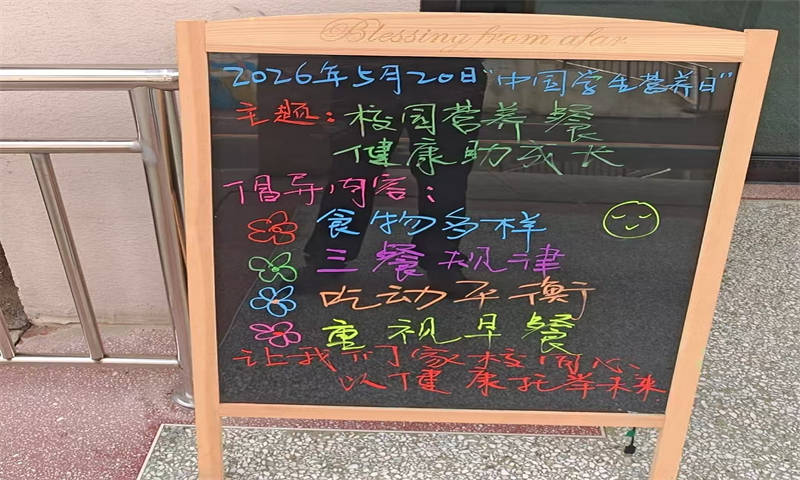 Blessing from afar
2026年5月20日"中国学生营养日"
主题:校园营养餐
健康助成长
倡导内容:
食物多样
三餐规律
吃动平衡
重视早餐
让我们家校同心
以健康托举未来